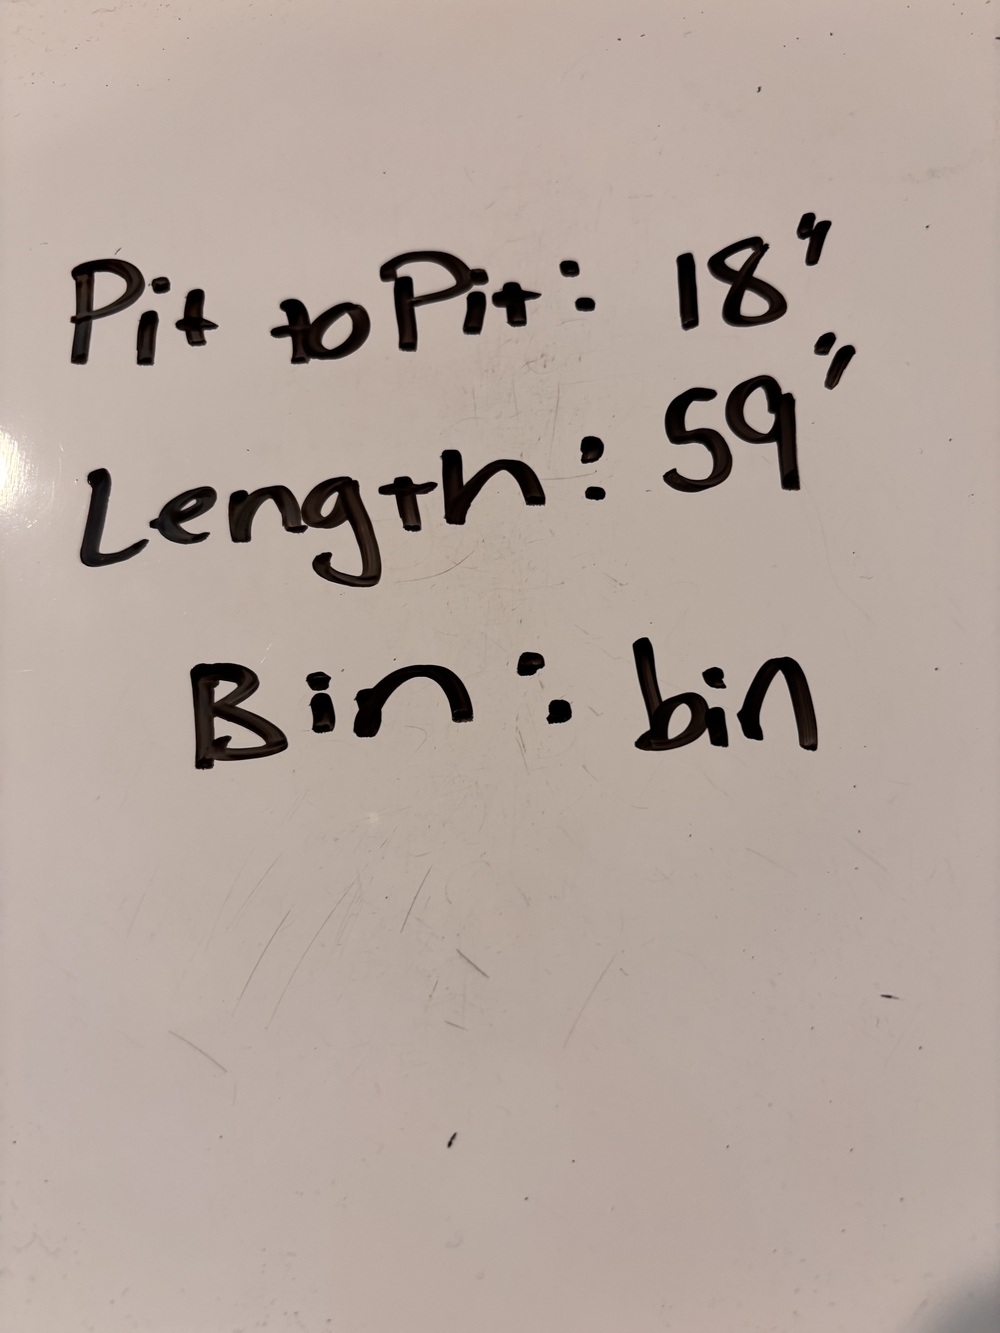 Pit to Pit: 18"
Length: 59"
Bin: bin